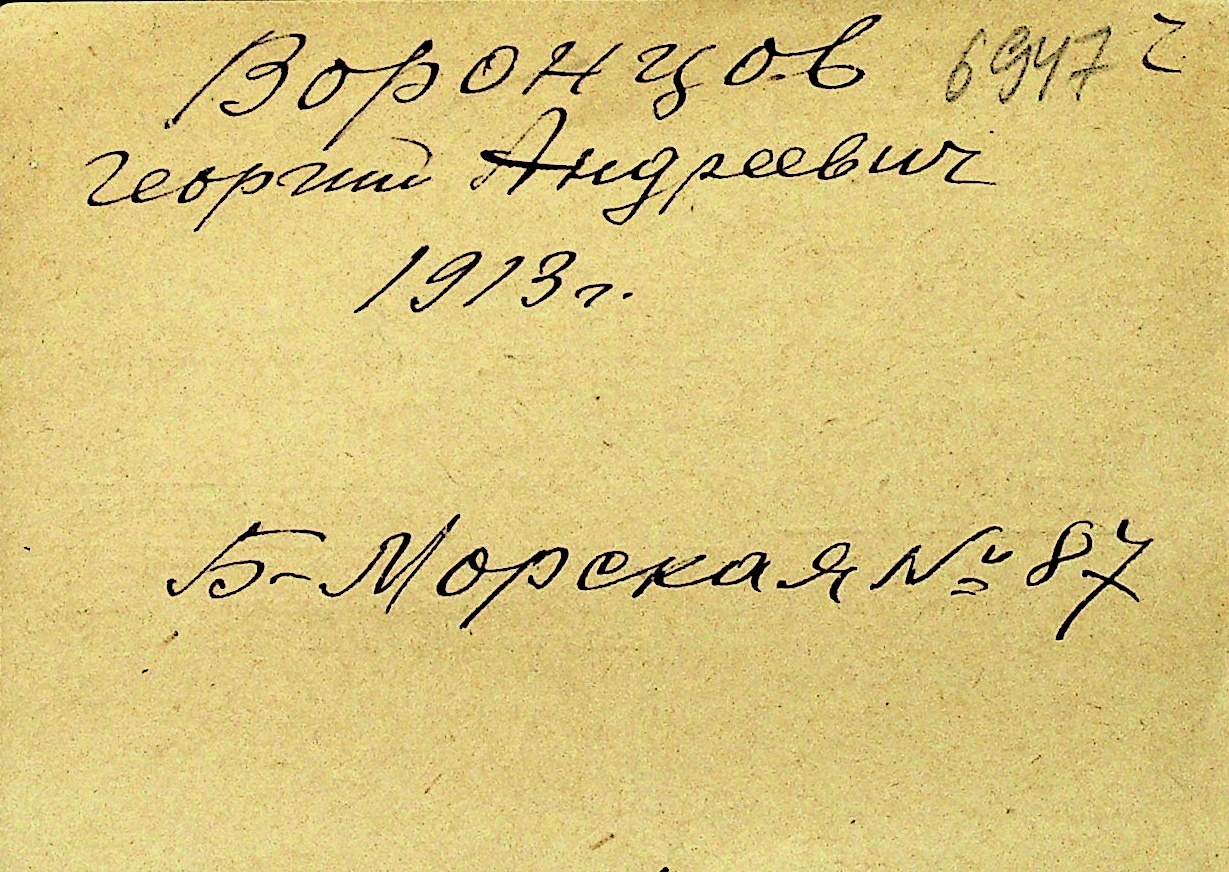 Воронцов 6947 г
Георгий Андреевич
1913 г.
Б-Морская № 87